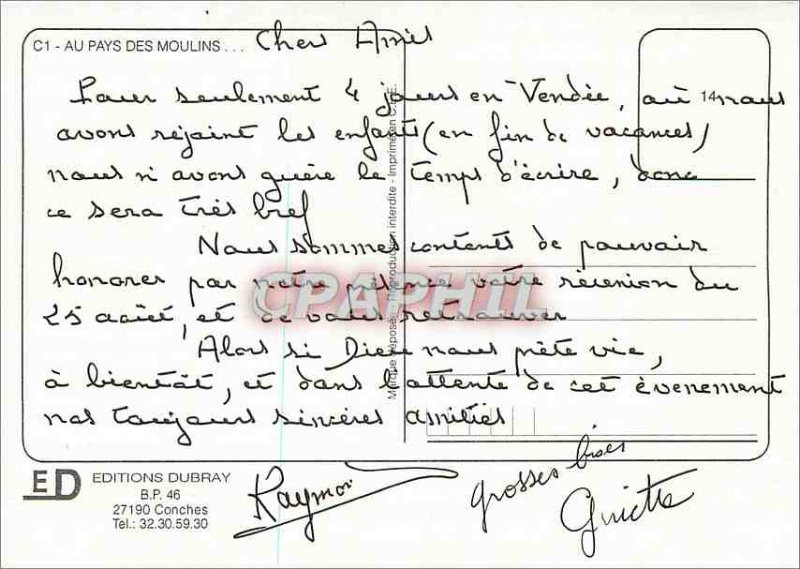 C1 - AU PAYS DES MOULINS . . .
Chers Amis
14
Pour seulement 4 jours en Vendée, où nous
avons rejoint les enfants (en fin de vacances)
nous n'avons guère le temps d'écrire, donc
ce sera très bref
Nous sommes contents de pouvoir
honorer par notre présence votre réunion du
25 août, et de vous retrouver
Alors si Dieu nous prête vie,
à bientôt, et dans l'attente de cet évènement
nos toujours sincères amitiés
grosses bises
Raymond
Marque déposée - Reproduction interdite - Imprimé en C.E.E.
CPAPHIL
ED
EDITIONS DUBRAY
B.P. 46
27190 Conches
Tel.: 32.30.59.30